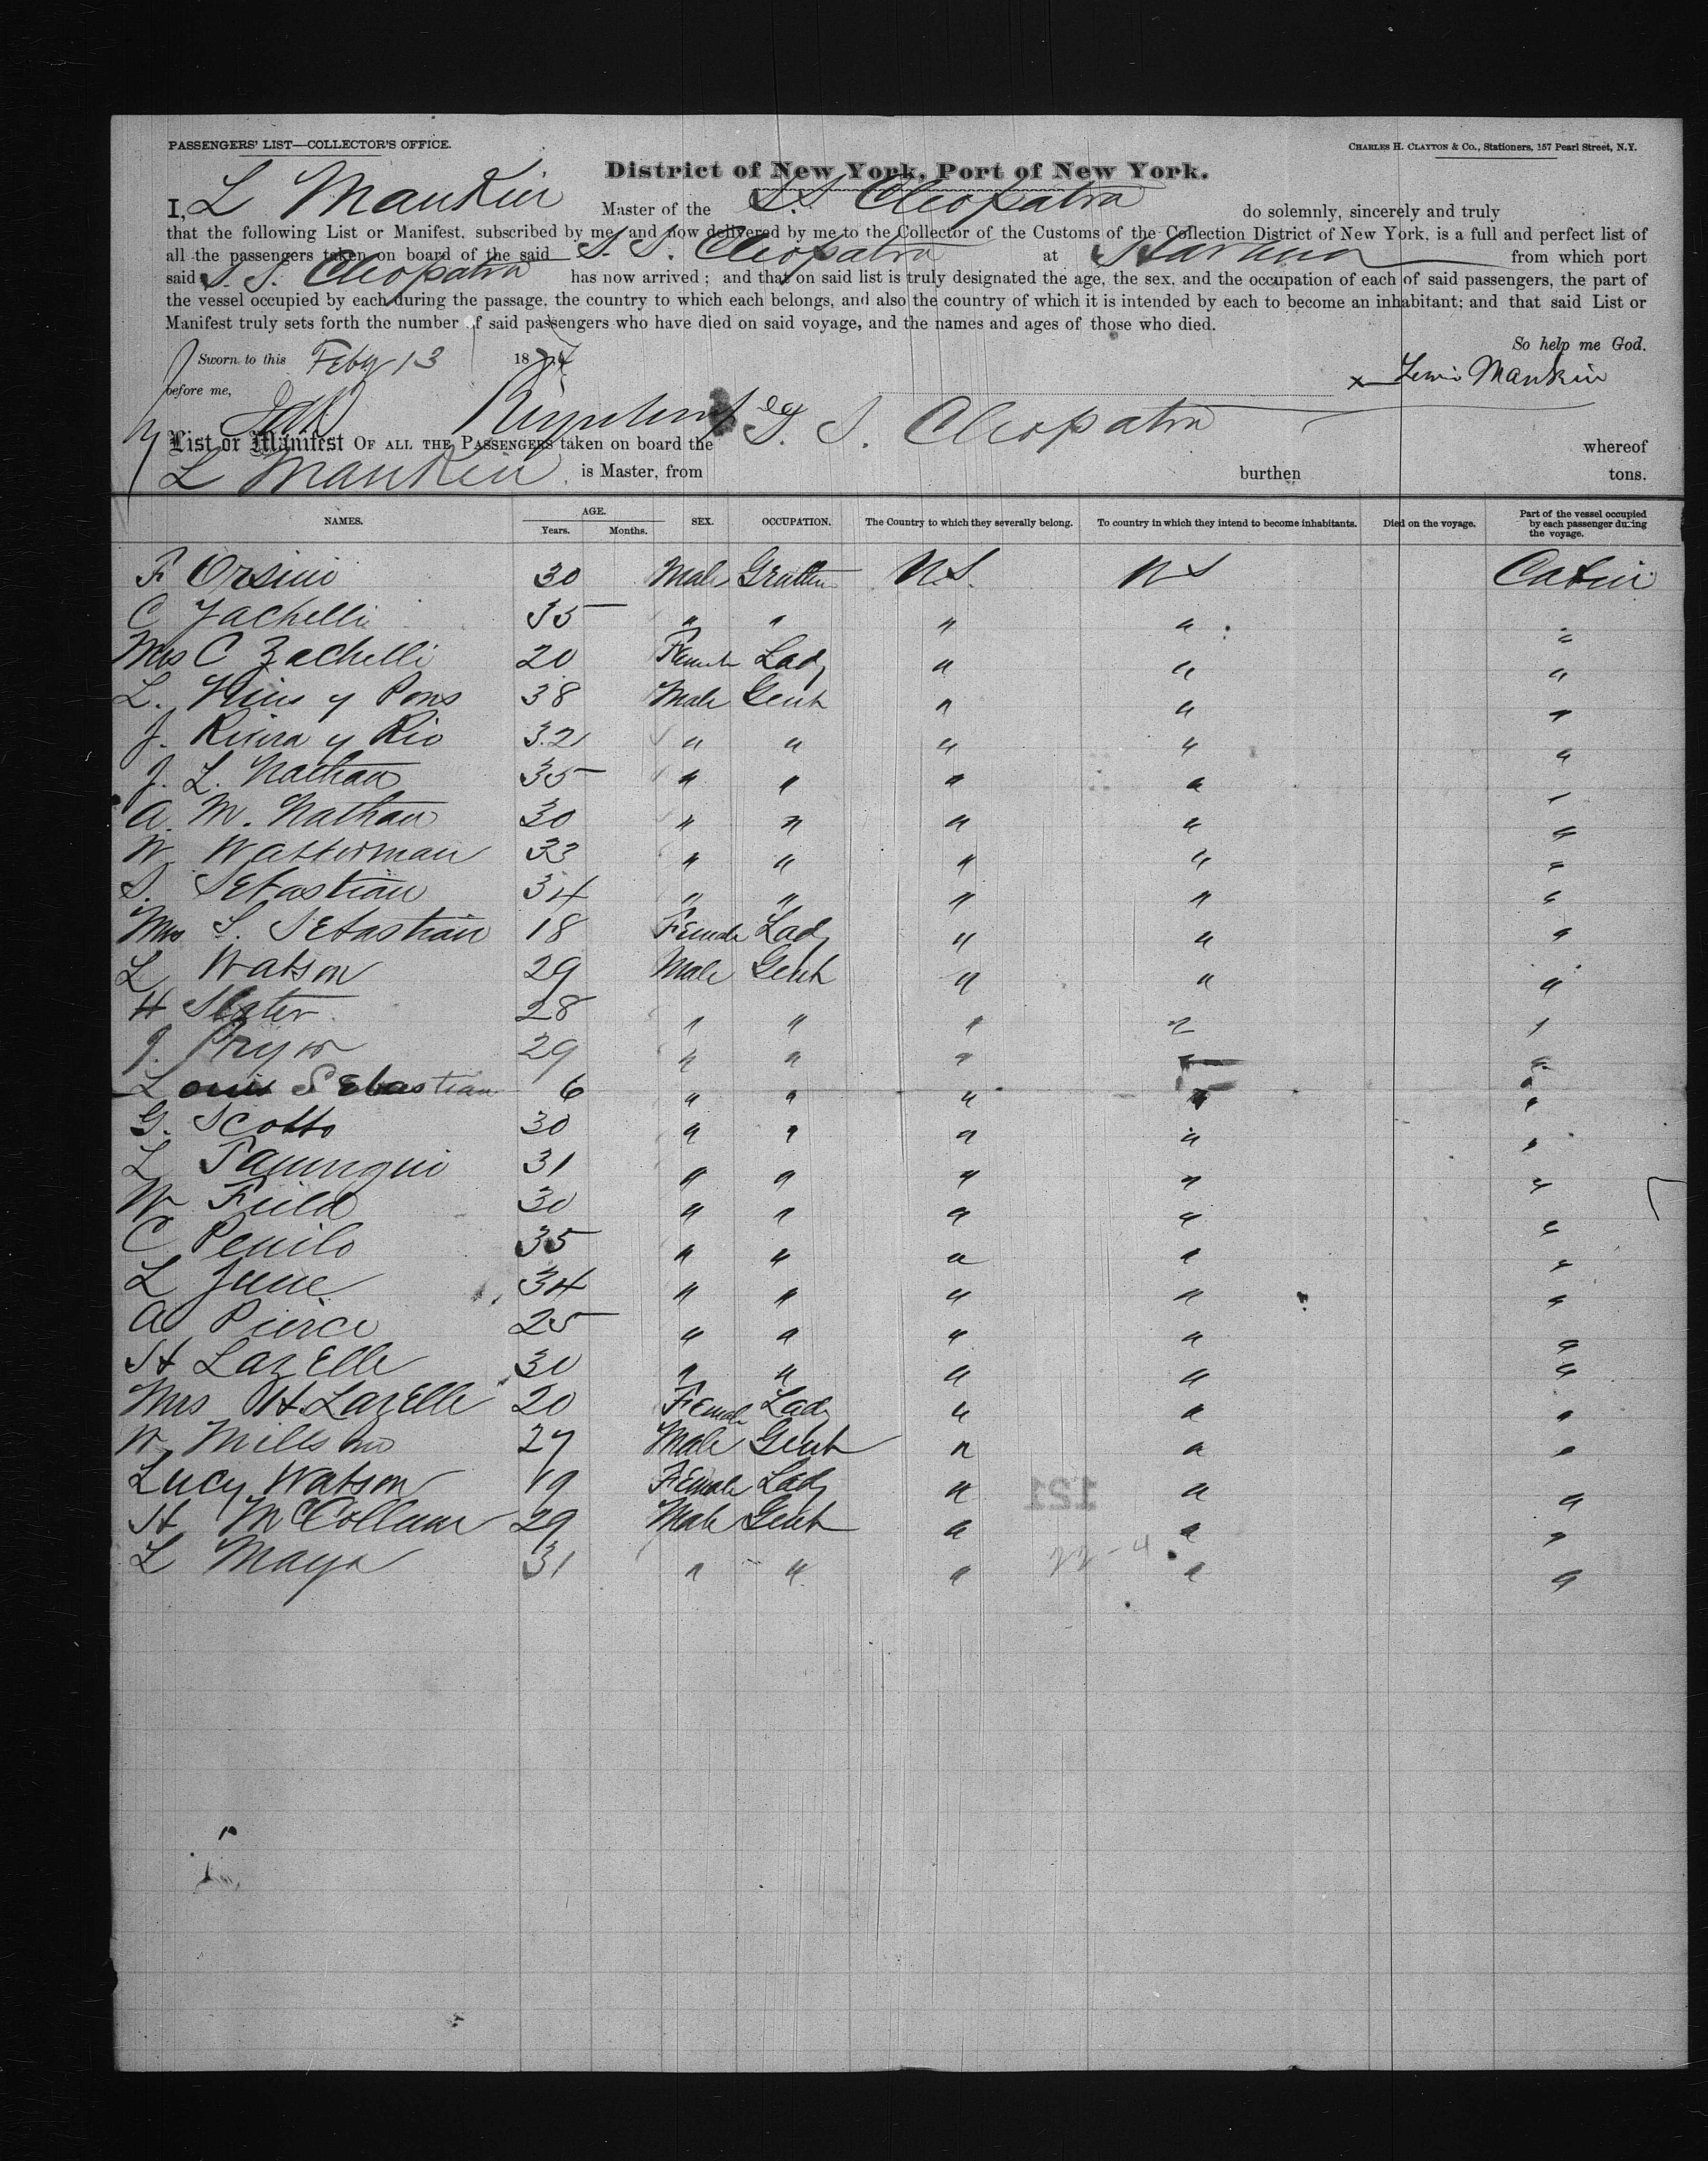 PASSENGERS' LIST—COLLECTOR'S OFFICE.
CHARLES H. CLAYTON & CO., Stationers, 157 Pearl Street, N.Y.
District of New York, Port of New York.
I, L Mankin Master of the S.S Cleopatra do solemnly, sincerely and truly
that the following List or Manifest, subscribed by me, and now delivered by me to the Collector of the Customs of the Collection District of New York, is a full and perfect list of
all the passengers taken on board of the said S. S. Cleopatra at Havana from which port
said S. S. Cleopatra has now arrived; and that on said list is truly designated the age, the sex, and the occupation of each of said passengers, the part of
the vessel occupied by each during the passage, the country to which each belongs, and also the country of which it is intended by each to become an inhabitant; and that said List or
Manifest truly sets forth the number of said passengers who have died on said voyage, and the names and ages of those who died.
So help me God.
Sworn to this Feby 13 187
before me, x Lewis Mankin
List or Manifest OF ALL THE PASSENGERS taken on board the S. S. Cleopatra whereof
L Mankin is Master, from burthen tons.
NAMES. AGE. Years. Months. SEX. OCCUPATION. The Country to which they severally belong. To country in which they intend to become inhabitants. Died on the voyage. Part of the vessel occupied by each passenger during the voyage.
F Orsini 30 Male U.S. U S Cabin
C Zachelli 35 " " " " "
Mrs C Zachelli 20 Female Lady " " "
L. y Pons 38 Male Gent " " "
J. Rivira y Rio 32 " " " " "
J. L. Nathan 35 " " " " "
A. M. Nathan 30 " " " " "
W. Watterman 33 " " " " "
S. Sebastian 34 " " " " "
Mrs S. Sebastian 18 Female Lady " " "
L Watson 29 Male Gent " " "
H Slater 28 " " " " "
J. Pryor 29 " " " " "
Louis Sebastian 6 " " " " "
G. Scotto 30 " " " " "
L 31 " " " " "
W Field 30 " " " " "
C Penilo 35 " " " " "
L June 34 " " " " "
A Pierce 25 " " " " "
H LazElle 30 " " " " "
Mrs H. LazElle 20 Female Lady " " "
W. Mills 27 Male Gent " " "
Lucy Watson 19 Female Lady " " "
H McCollum 29 Male Gent " " "
L Maya 31 " " " " "
121